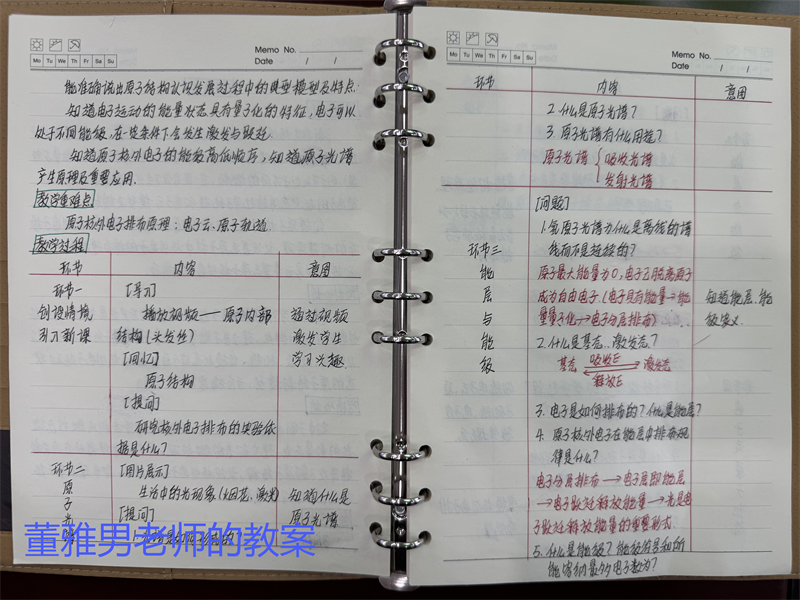 Memo No.
Mo Tu We Th Fr Sa Su
Date / /
能准确说出原子结构认识发展过程中的典型模型及特点.
知道电子运动的能量状态具有量子化的特征,电子可以
处于不同能级,在一定条件下会发生激发与跃迁
知道原子核外电子的能级高低顺序,知道原子光谱
产生原理及重要应用.
教学重难点
原子核外电子排布原理;电子云、原子轨道
教学过程
环节 内容 意图
环节一 [导入]
创设情境 播放视频——原子内部 通过视频
引入新课 结构(头发丝) 激发学生
[回忆] 学习兴趣.
原子结构
[提问]
研究核外电子排布的实验依
据是什么?
环节二 [图片展示]
原 生活中的光现象(烟花、激光) 知道什么是
子 [提问] 原子光谱
光
董雅男老师的教案
Memo No.
Mo Tu We Th Fr Sa Su
Date / /
环节 内容 意图
2.什么是原子光谱?
3.原子光谱有什么用途?
原子光谱 { 吸收光谱
发射光谱
[问题]
1.氢原子光谱为什么是离线的谱
环节三 线而不是连续的?
能 原子最大能量为0,电子已脱离原子
层 成为自由电子(电子具有能量→能 知道能层、能
与 量量子化→电子分层排布) 级含义.
能 2.什么是基态、激发态?
级 基态 吸收E 激发态
释放E
3.电子是如何排布的?什么是能层?
4.原子核外电子在能层中排布规
律是什么?
电子分层排布→电子层即能层
→电子跃迁释放能量→光是电
子跃迁释放能量的重要形式.
5.什么是能级?能级符号和所
能容纳最多电子数为?